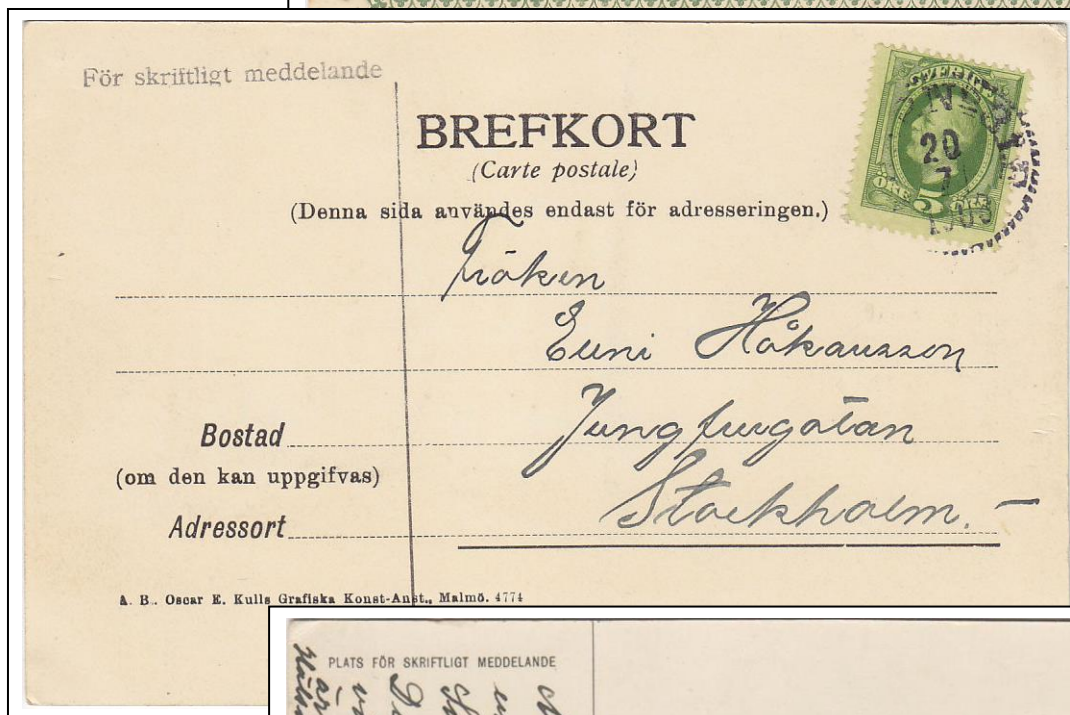 För skriftligt meddelande
BREFKORT
(Carte postale)
(Denna sida användes endast för adresseringen.)
SVERIGE
20
7
ÖRE 5 ÖRE
Fröken
Euni Håkansson
Jungfrugatan
Bostad
(om den kan uppgifvas)
Stockholm. —
Adressort
A. B. Oscar E. Kulls Grafiska Konst-Anst., Malmö. 4774
PLATS FÖR SKRIFTLIGT MEDDELANDE